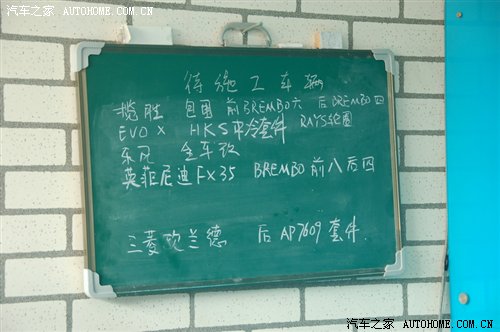 汽车之家 AUTOHOME.COM.CN
汽车之家 AUTOHOME.COM.CN
待施工车辆
揽胜 包围 前BREMBO六 后BREMBO四
EVO X HKS中冷套件 RAYS轮圈
东风 全车改
英菲尼迪FX35 BREMBO前八后四
三菱欧兰德 后AP7609套件
汽车之家 AUTOHOME.COM.CN
汽车之家 AUTOHOME.COM.CN